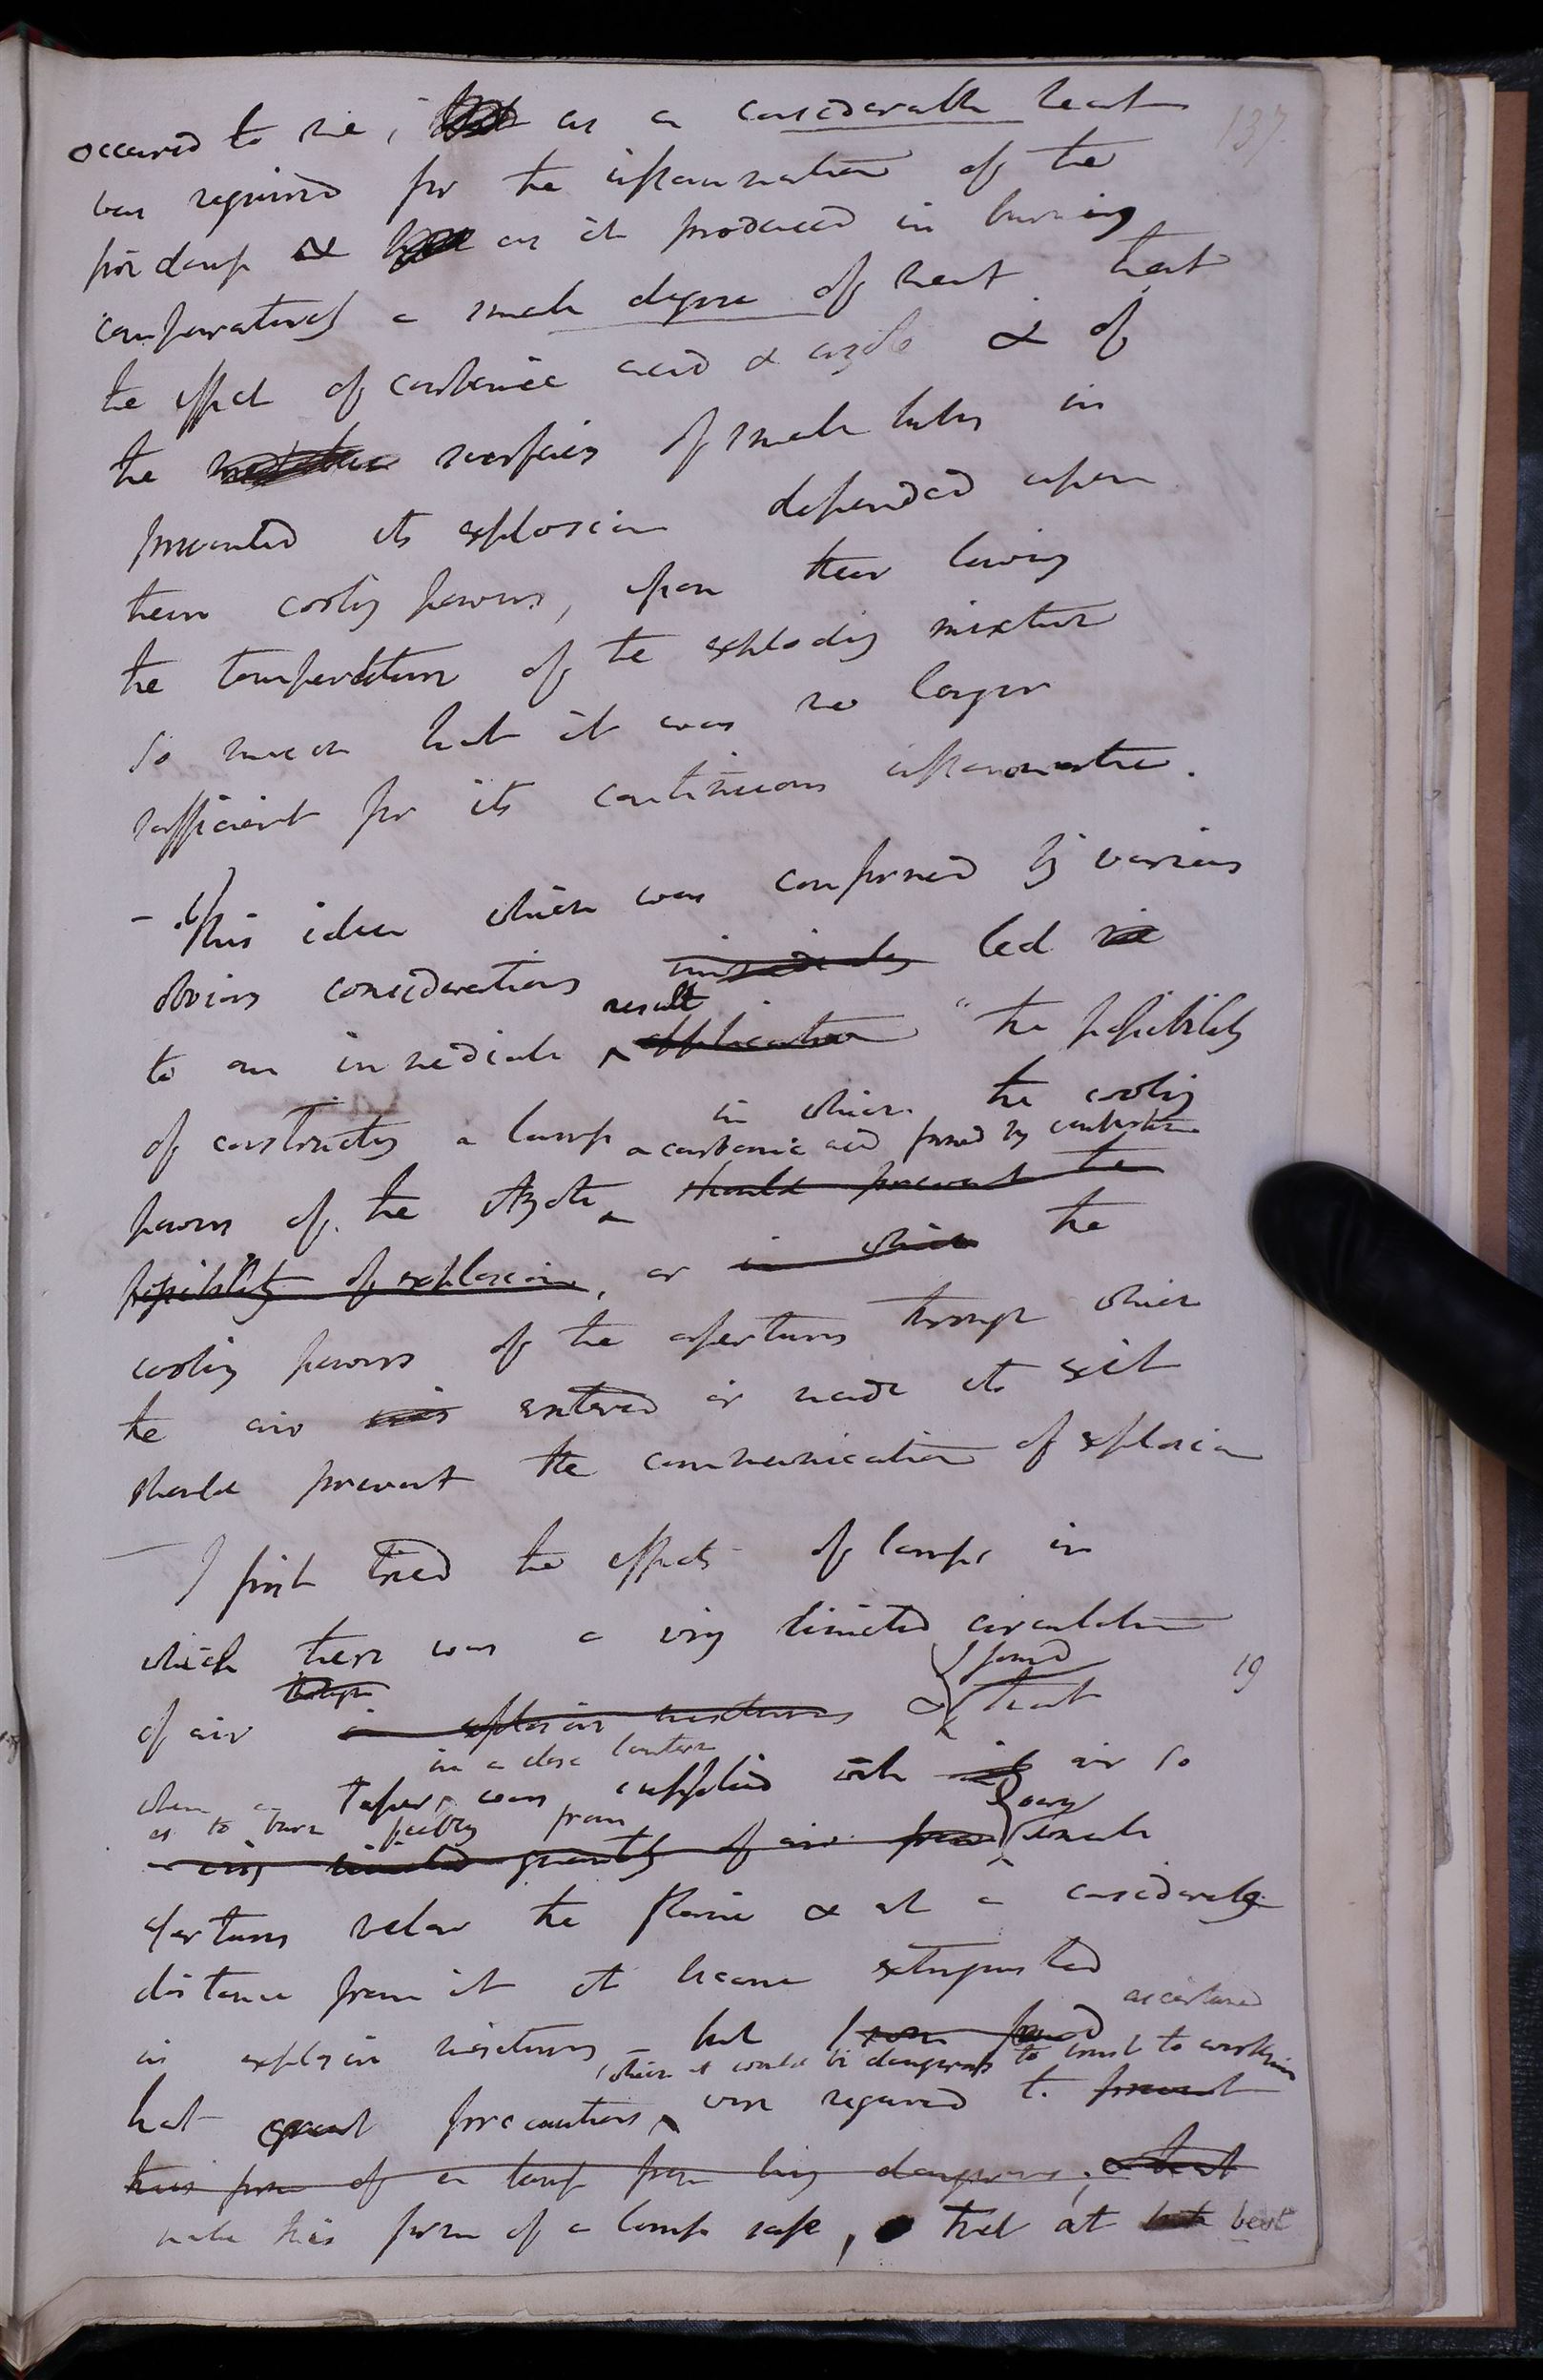 137
occured to me, as a considerable heat
was required for the inflammation of the
fire damp & as it produced in burning
comparatively a small degree of heat that
the effect of carbonic acid & azote & of
the surfaces of small tubes in
prevented its explosion depended upon
their cooling powers, upon their lowering
the temperature of the exploding mixture
so much that it was no longer
sufficient for its continuous inflammation.
- This idea which was confirmed by various
obvious considerations immediately led me
result
to an immediate application "the possibility
of constructing a lamp in which the cooling
& carbonic acid formed by combustion
powers of the Azote should prevent the
possibility of explosion, or in which the
cooling powers of the apertures through which
the air was entered or made its exit
should prevent the communication of explosion
— I first tried the effects of lamps in
which there was a very limited circulation
found
of air in explosive mixtures & that 19
in a close lantern
when a Taper was supplied with air so
as to burn feebly from very
a very limited quantity of air from small
apertures below the flame & at a considerable
distance from it it became extinguished
ascertained
in explosive mixtures but I soon found
which it would be dangerous to trust to workmen
that great precautions were required to prevent
this form of a lamp from being dangerous; & that
make this form of a lamp safe, & that at best